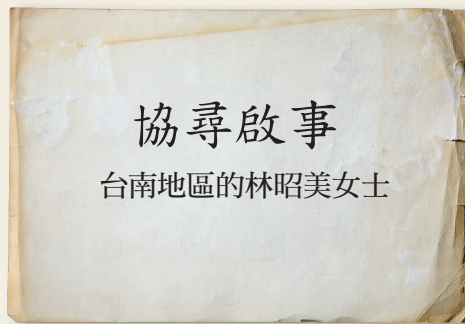 協尋啟事
台南地區的林昭美女士